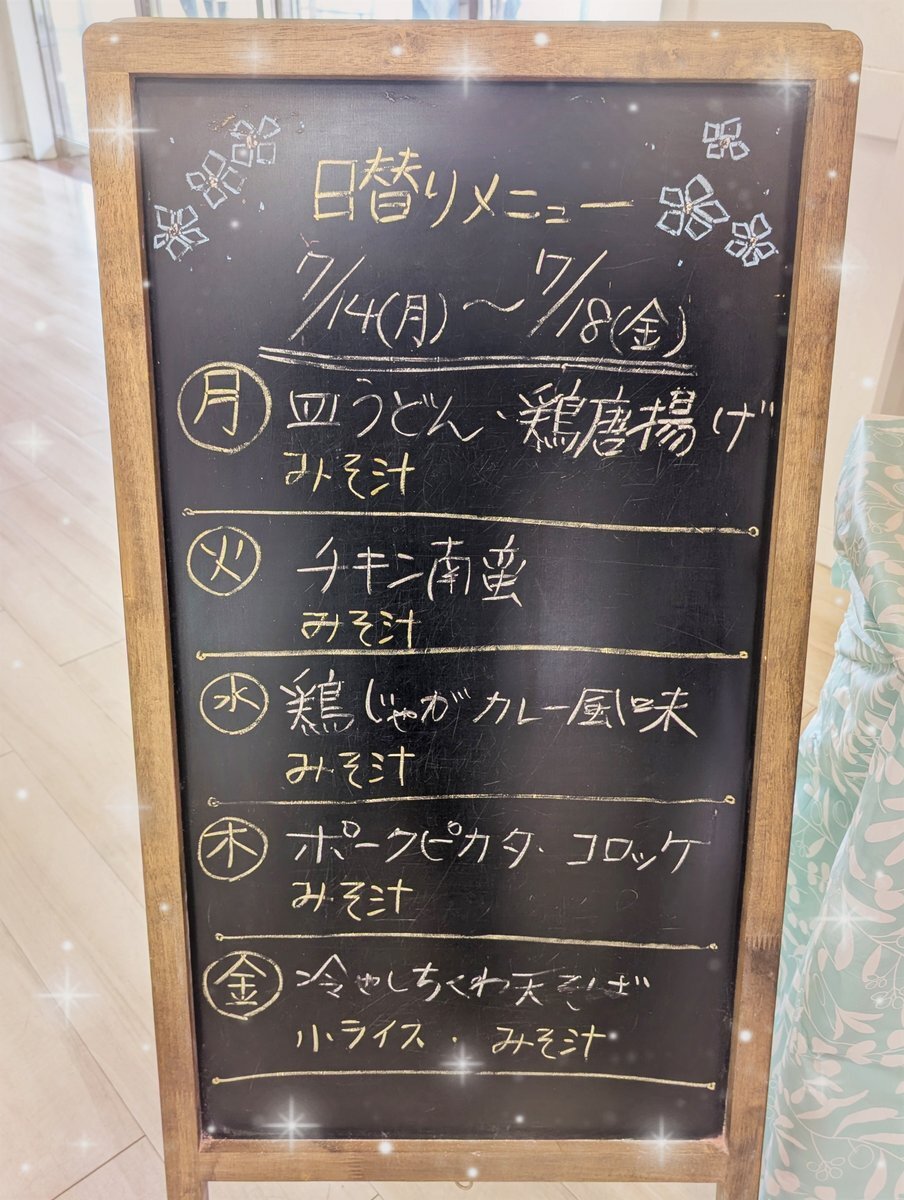 日替りメニュー
7/14(月)～7/18(金)
月 皿うどん・鶏唐揚げ
みそ汁
火 チキン南蛮
みそ汁
水 鶏じゃがカレー風味
みそ汁
木 ポークピカタ・コロッケ
みそ汁
金 冷やしちくわ天そば
小ライス・みそ汁